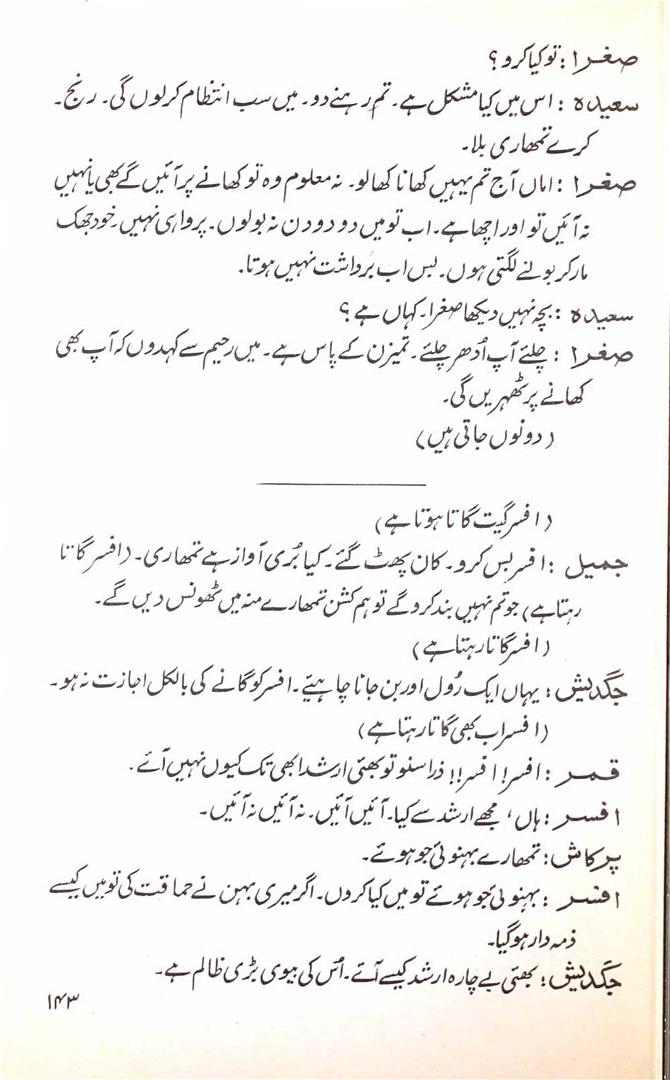 صغرا : تو کیا کرو ؟
سعیدہ : اس میں کیا مشکل ہے۔ تم رہنے دو۔ میں سب انتظام کرلوں گی۔ رنج۔
کرے تمھاری بلا۔
صغرا : اماں آج تم یہیں کھانا کھالو۔ نہ معلوم وہ تو کھانے پر آئیں گے بھی یا نہیں
نہ آئیں تو اور اچھا ہے۔ اب تو میں دو دو دن نہ بولوں۔ پروا ہی نہیں۔ خود جھک
مار کر بولنے لگتی ہوں۔ بس اب برداشت نہیں ہوتا۔
سعیدہ : بچہ نہیں دیکھا صغرا۔ کہاں ہے ؟
صغرا : چلئے آپ اُدھر چلئے۔ تمیزن کے پاس ہے۔ میں رحیم سے کہدوں کہ آپ بھی
کھانے پر ٹھہریں گی۔
( دونوں جاتی ہیں )
( افسر گیت گاتا ہوتا ہے )
جمیل : افسر بس کرو۔ کان پھٹ گئے۔ کیا بُری آواز ہے تمھاری۔ ( افسر گاتا
رہتا ہے ) جو تم نہیں بند کرو گے تو ہم کشن تمھارے منہ میں ٹھونس دیں گے۔
( افسر گاتا رہتا ہے )
جگدیش : یہاں ایک رُول اور بن جانا چاہئیے۔ افسر کو گانے کی بالکل اجازت نہ ہو۔
( افسر اب بھی گاتا رہتا ہے )
قمر : افسر! افسر!! ذرا سنو تو بھئی ارشد ابھی تک کیوں نہیں آئے۔
افسر : ہاں، مجھے ارشد سے کیا۔ آئیں آئیں۔ نہ آئیں نہ آئیں۔
پرکاش : تمھارے بہنوئی جو ہوئے۔
افسر : بہنوئی جو ہوئے تو میں کیا کروں۔ اگر میری بہن نے حماقت کی تو میں کیسے
ذمہ دار ہو گیا۔
جگدیش : بھئی بے چارہ ارشد کیسے آئے۔ اُس کی بیوی بڑی ظالم ہے۔
۱۴۳